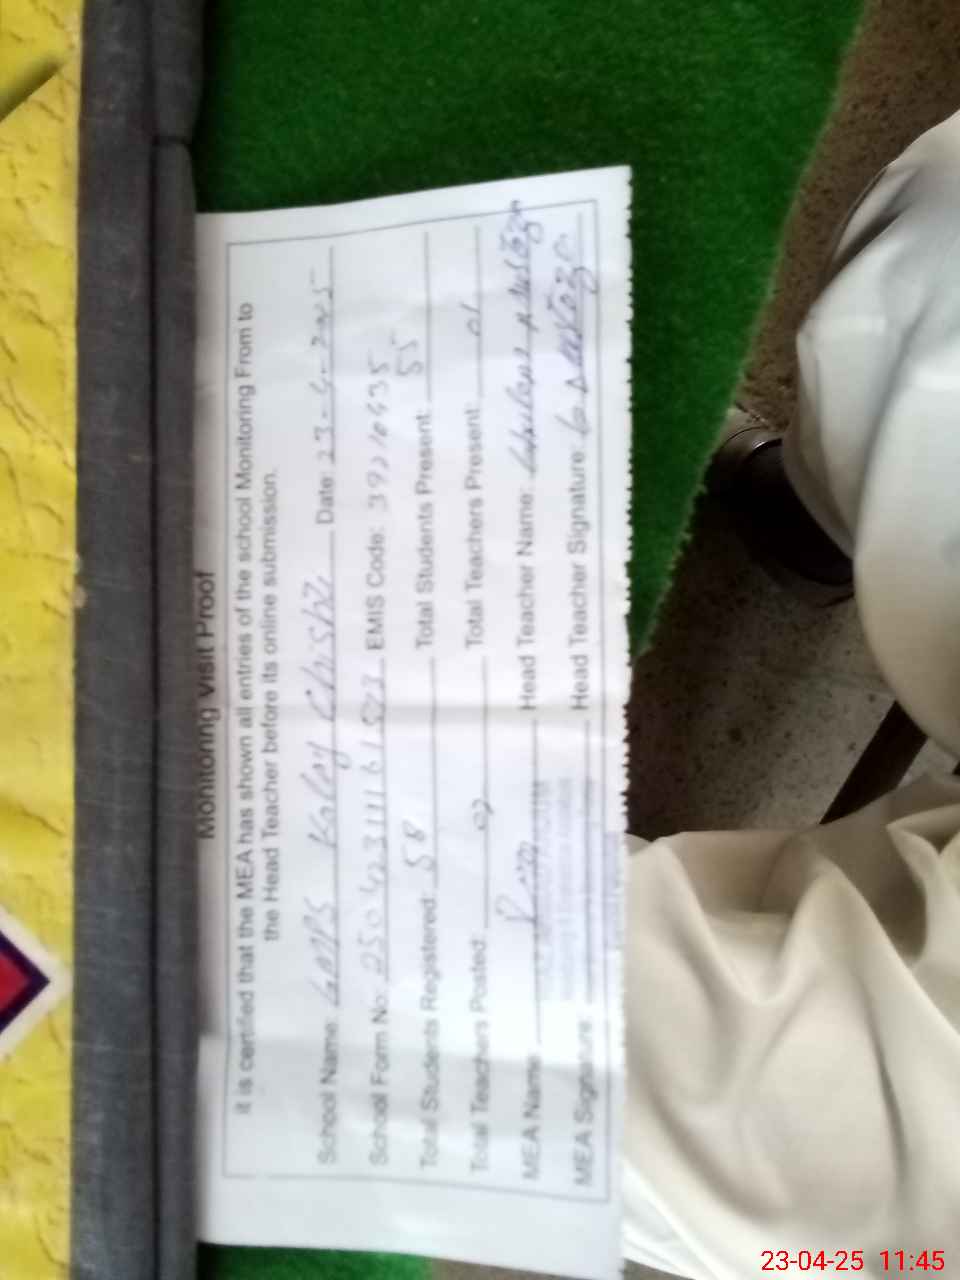 Monitoring Visit Proof
it is certified that the MEA has shown all entries of the school Monitoring From to
the Head Teacher before its online submission.
School Name: GMPS Kolay Chishti Date: 23-4-2025
School Form No: EMIS Code: 39210435
Total Students Registered: 58 Total Students Present: 55
Total Teachers Posted: Total Teachers Present: 01
MEA Name: Head Teacher Name: Ghulam
MEA Signature: Head Teacher Signature:
23-04-25 11:45